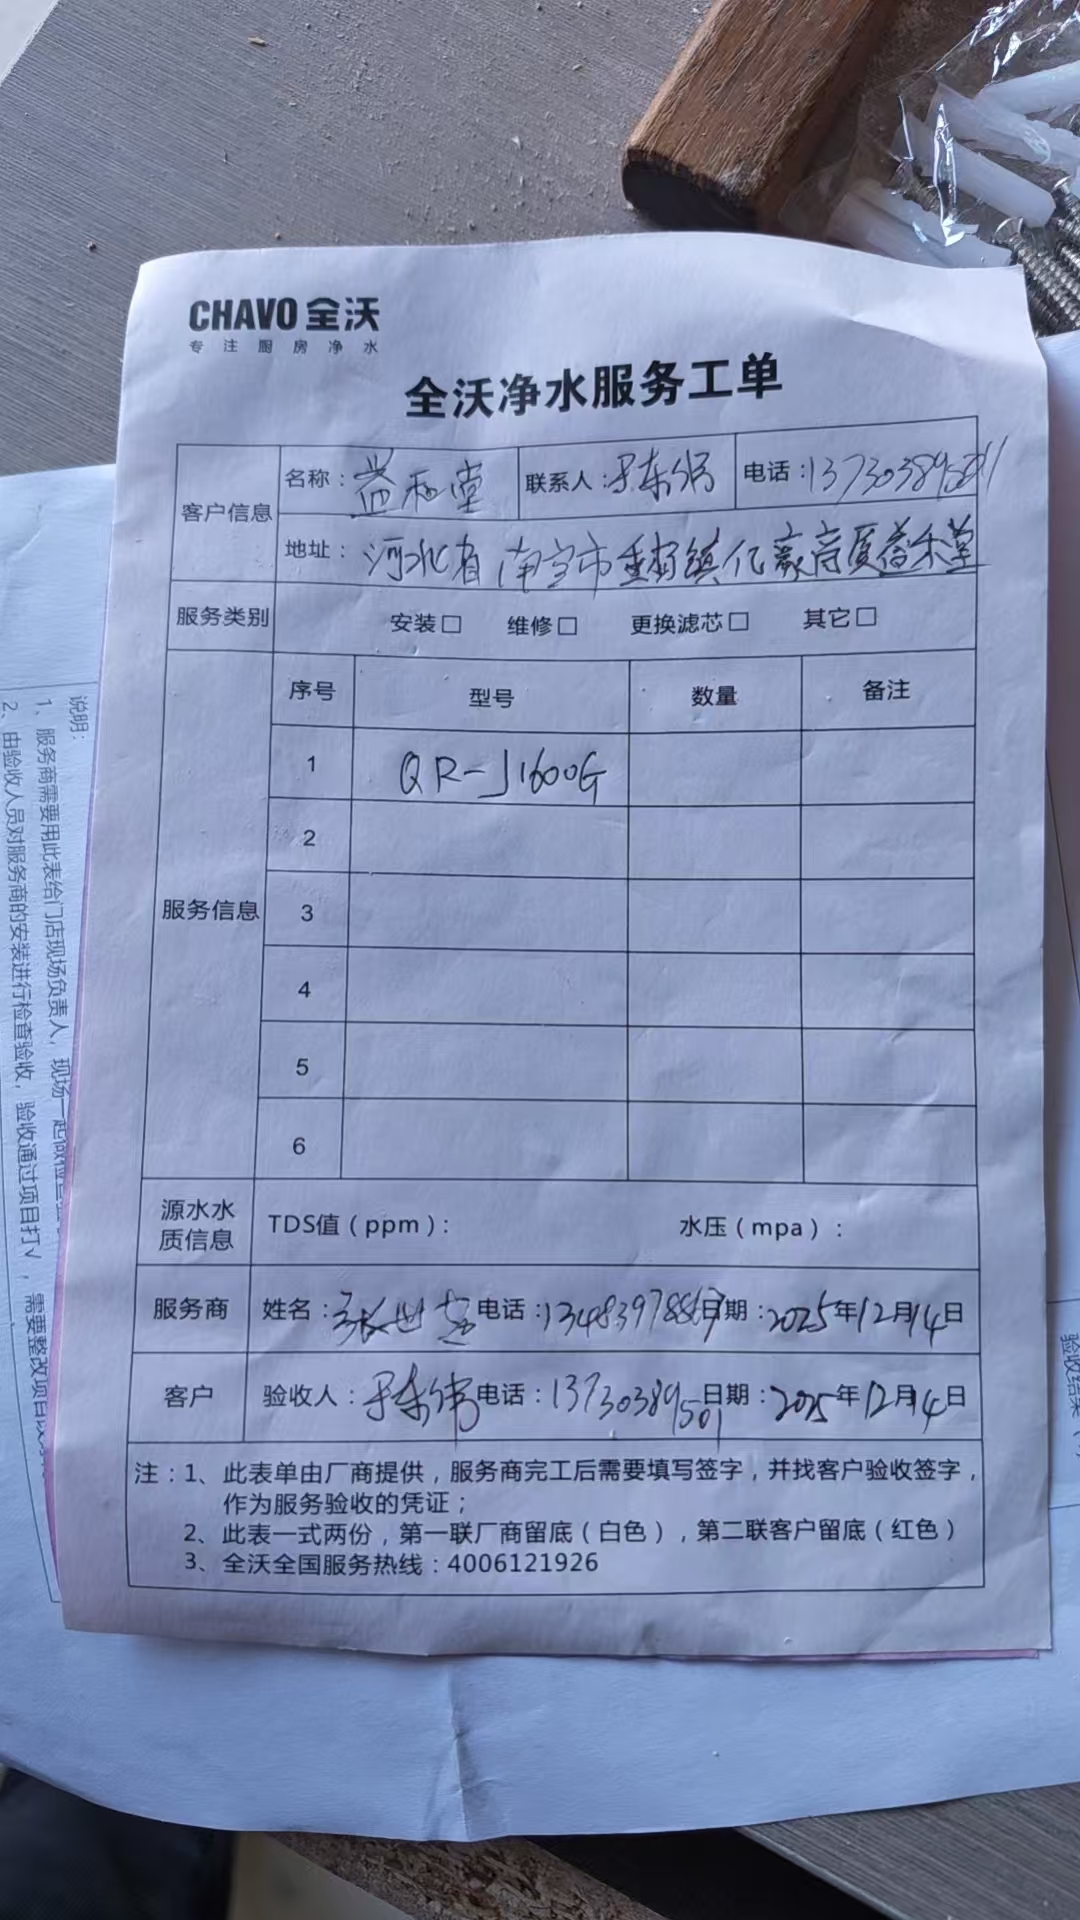 CHAVO 全沃
专注厨房净水
全沃净水服务工单
客户信息
名称：益禾堂 联系人：尹东伟 电话：
地址：河北省南宫市 镇亿豪商厦益禾堂
服务类别 安装□ 维修□ 更换滤芯□ 其它□
服务信息
序号 型号 数量 备注
1 QR-J1600G
2
3
4
5
6
源水水质信息 TDS值（ppm）： 水压（mpa）：
服务商 姓名：张世 电话： 日期：2025年12月14日
客户 验收人：尹东伟 电话：13730389501 日期：2025年12月14日
注：1、此表单由厂商提供，服务商完工后需要填写签字，并找客户验收签字，
作为服务验收的凭证；
2、此表一式两份，第一联厂商留底（白色），第二联客户留底（红色）
3、全沃全国服务热线：4006121926
说明：
1、服务商需要用此表给门店现场负责人，现场一起
2、由验收人员对服务商的安装进行检查验收，验收通过项目打√，需要整改项目
验收结果